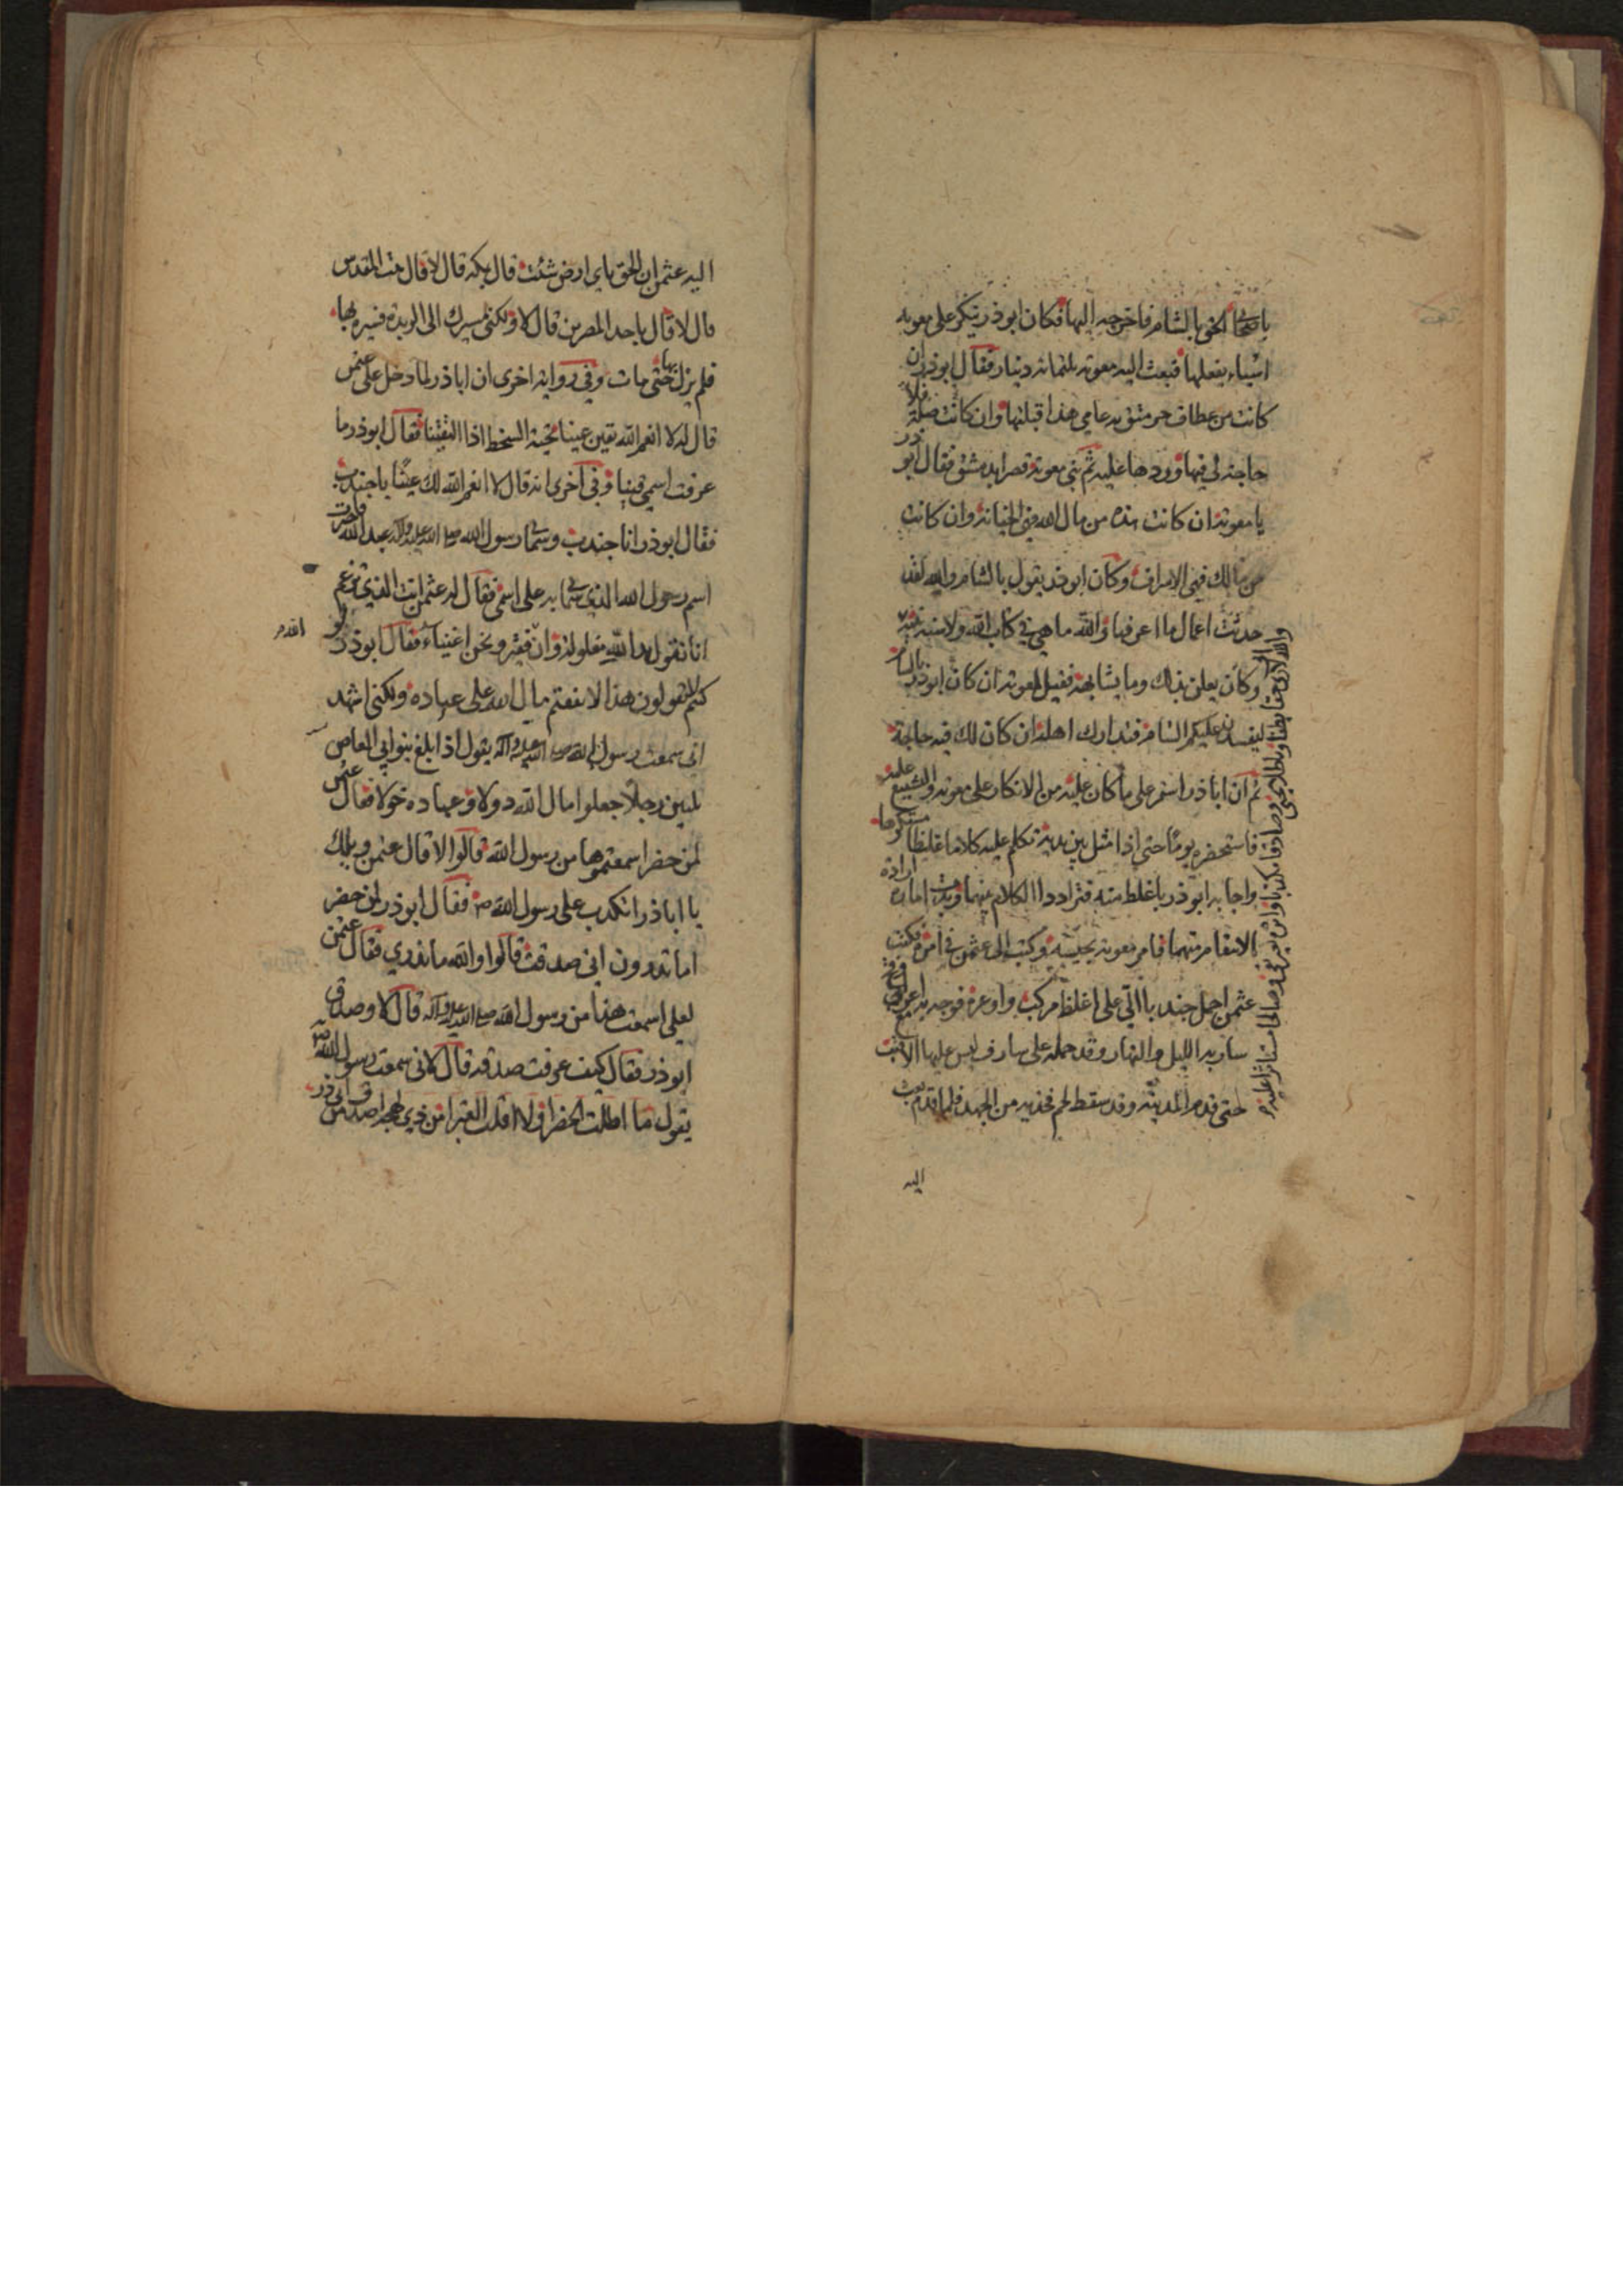 باصحابي الحق بالشام فاخرجه اليها فكان ابوذر ينكر على معوية
اشياء يفعلها فبعث اليه معوية بثلثمائة دينار فقال ابوذر ان
كانت من عطائي حرمتمونيه عامي هذا قبلتها وان كانت صلة فلا
حاجة لي فيها وردها عليه ثم بنى معوية قصرا بدمشق فقال ابو ذر
يا معوية ان كانت هذه من مال الله فهي الخيانة وان كانت
من مالك فهي الاسراف وكان ابوذر يقول بالشام والله لقد
حدثت اعمال ما اعرفها والله ما هي في كتاب الله ولا سنة نبيه
والله اني لارى حقا يطفا وباطلا يحيى وصادقا مكذبا واثرة بغير تقى وصالحا مستاثرا عليه
وكان يعلن بذلك وما يشابهه فقيل لمعوية ان كان ابوذر بالشام
ليفسدن عليكم الشام فتدارك اهله ان كان لك فيه حاجة
ثم ان اباذر استمر على ما كان عليه من الانكار على معوية والتشنيع عليه
فاستحضره يوما حتى اذا مثل بين يديه تكلم عليه كلاما غليظا مستكرها
واجابه ابوذر باغلظ منه فترادا الكلام بينهما وبدت امارة ارادة
الانتقام منهما فامر معوية بحبسه وكتب الى عثمن في امره فكتب
عثمن احمل جندبا الي على اغلظ مركب واوعره فوجه به اعرابي
سار به الليل والنهار وقد حمله على شارف ليس عليها الا قتب
حتى قدم المدينة وقد سقط لحم فخذيه من الجهد فلما قدم بعث
اليه
اليه عثمن ان الحق باي ارض شئت قال بمكة قال لا قال بيت المقدس
قال لا قال باحد المصرين قال لا ولكني مسيرك الى الربذة فسيره بها
فلم يزل بها حتى مات وفي رواية اخرى ان اباذر لما دخل على عثمن
قال له لا انعم الله بقين عينا تحية السخط اذا التقينا فقال ابوذر ما
عرفت اسمي قينا وفي اخرى انه قال لا انعم الله لك عينا يا جنيدب
فقال ابوذر انا جندب وسماني رسول الله صلى الله عليه واله عبد الله فاخترت
اسم رسول الله الذي سماني به على اسمي فقال له عثمن انت الذي تزعم
انا نقول يد الله مغلولة وان الله فقير ونحن اغنياء فقال ابوذر لو
كنتم لا تقولون هذا لانفقتم مال الله على عباده ولكني اشهد
اني سمعت رسول الله صلى الله عليه واله يقول اذا بلغ بنو ابي العاص
ثلثين رجلا جعلوا مال الله دولا وعباده خولا فقال عثمن
لمن حضر اسمعتموها من رسول الله قالوا لا قال عثمن ويلك
يا اباذر اتكذب على رسول الله ص فقال ابوذر لمن حضر
اما تدرون اني صدقت قالوا والله ما ندري فقال عثمن
لعلي اسمعت هذا من رسول الله صلى الله عليه واله قال لا وصدق
ابوذر فقال كيف عرفت صدقه قال لاني سمعت رسول الله ص
يقول ما اظلت الخضراء ولا اقلت الغبراء من ذي لهجة اصدق من ابي ذر